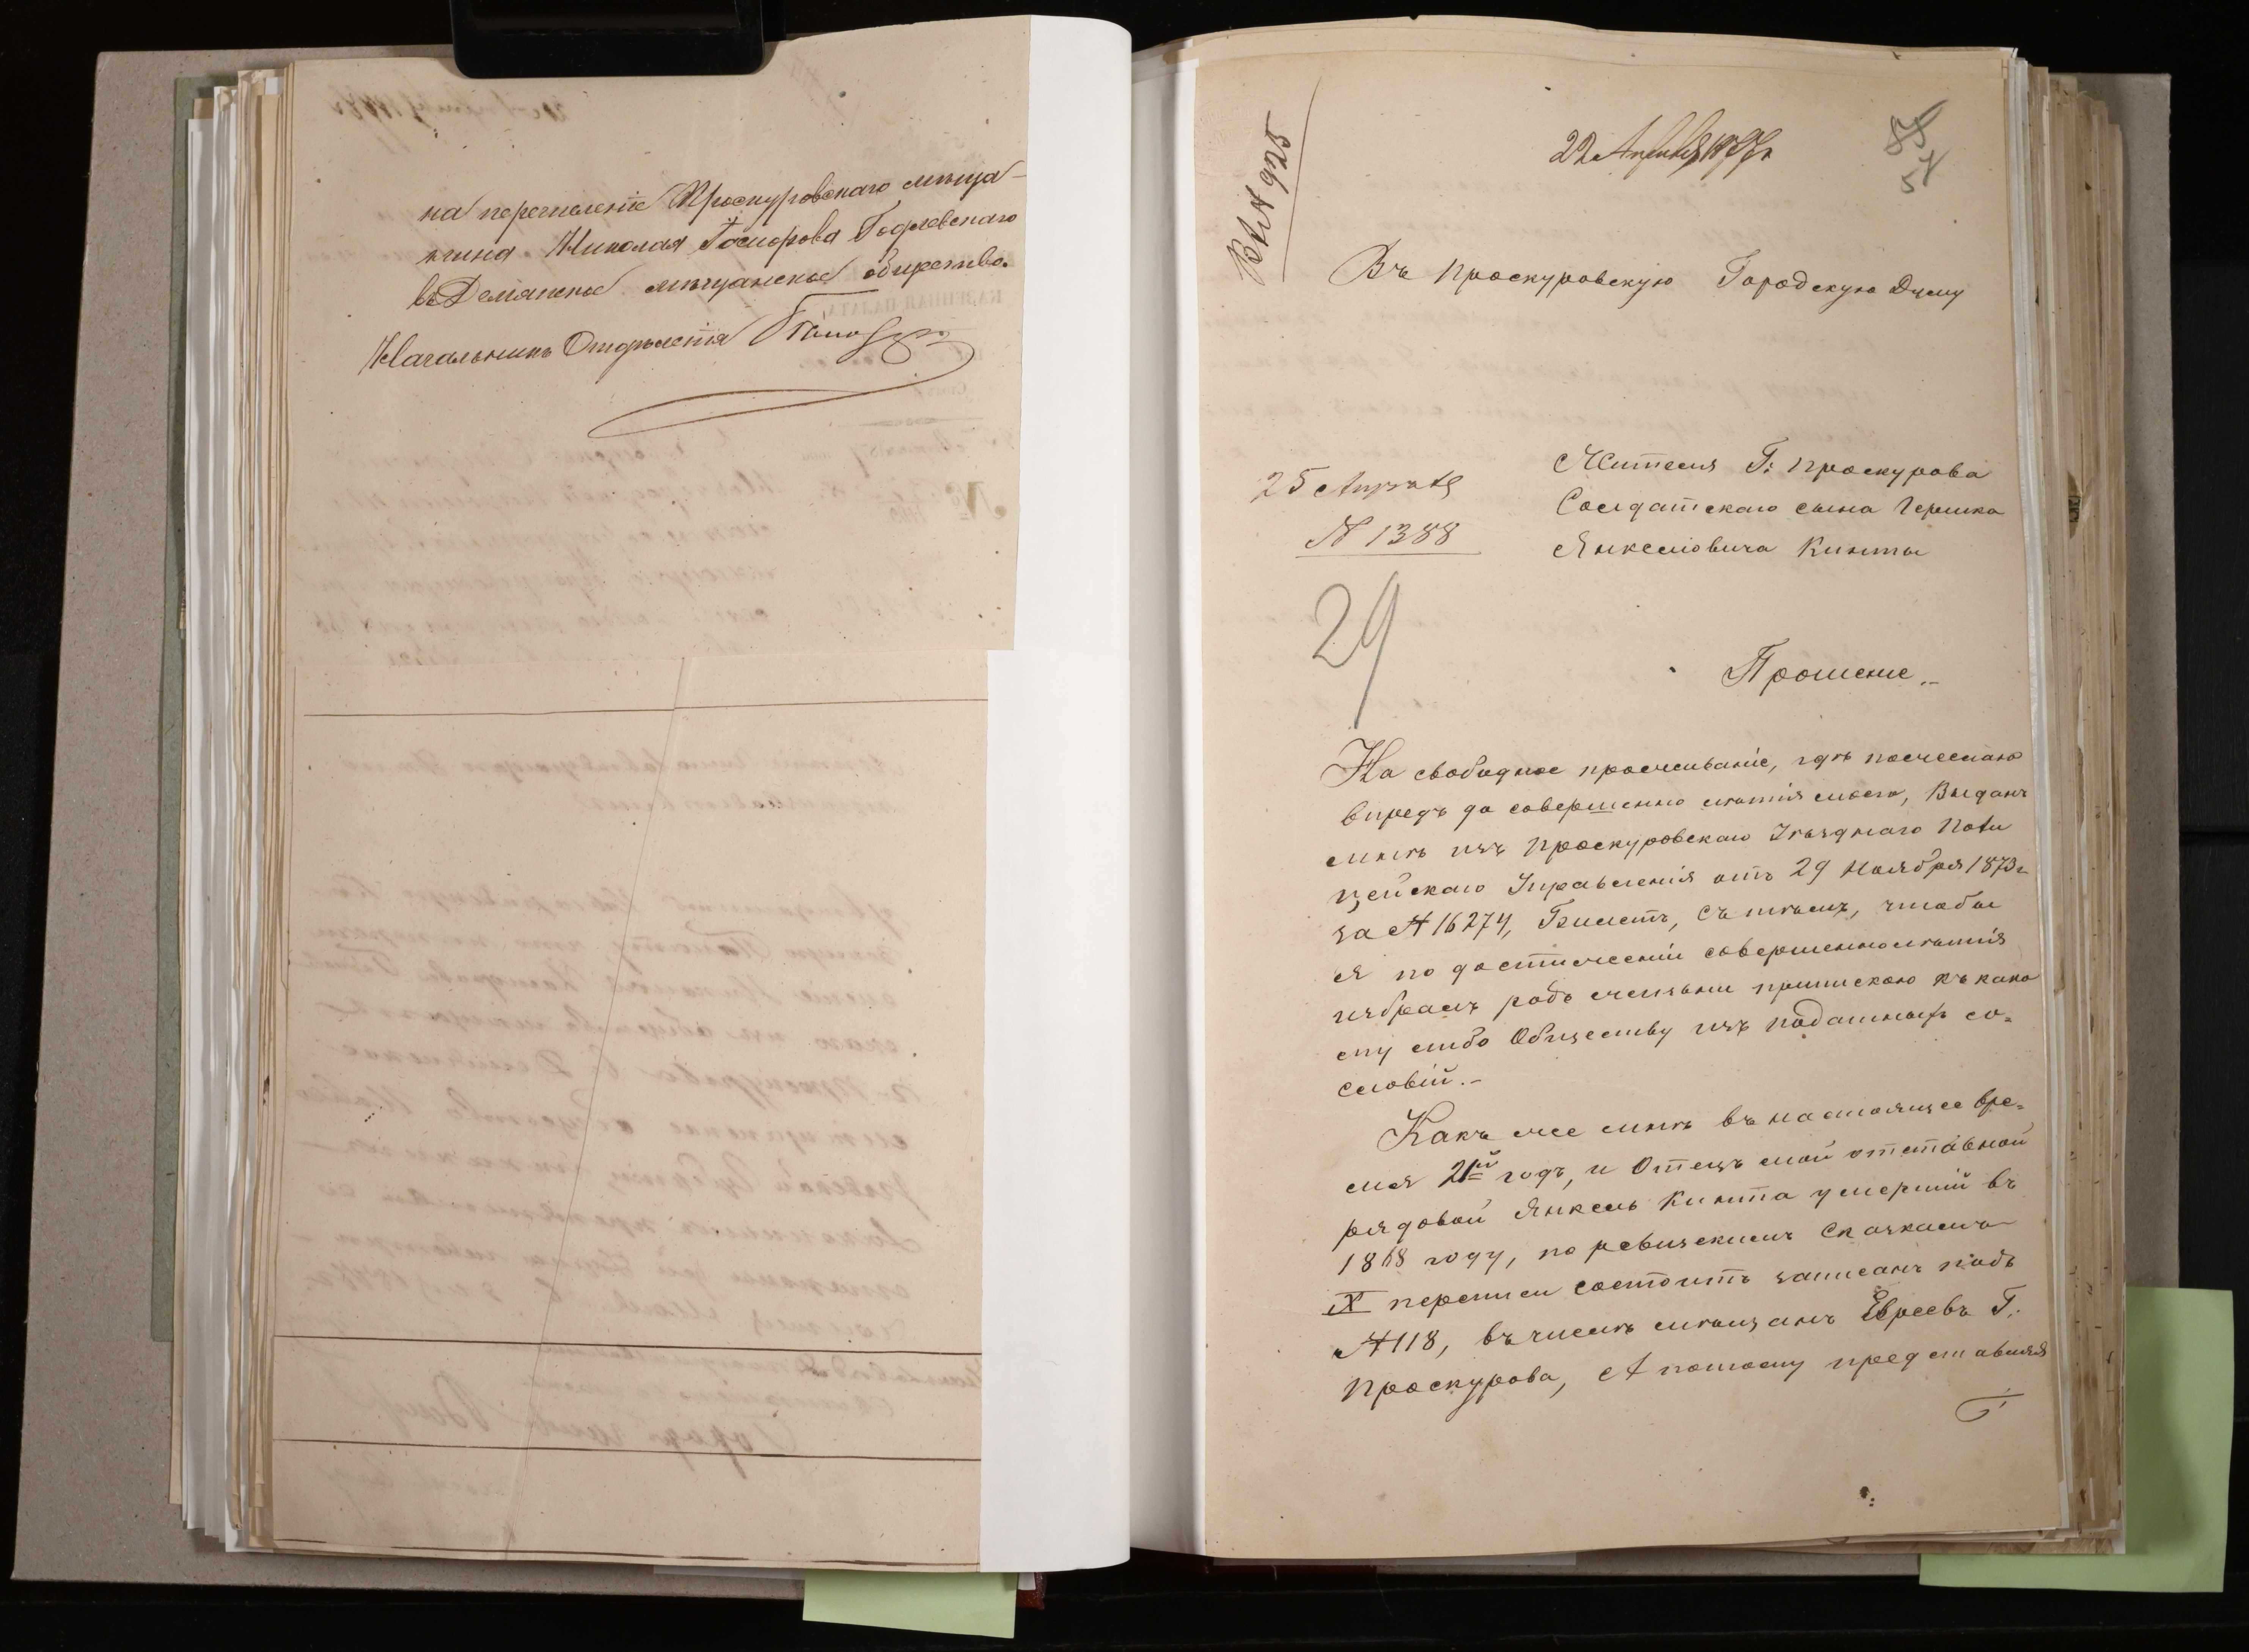 на перечисленіе Проскуровскаго мѣща-
нина Николая Госпорова Годлевскаго
въ Демянское мѣщанское общество.
Начальникъ Отдѣленія
Вх № 925
22 Апрѣля
57
Въ Проскуровскую Городскую Думу
25 Апрѣля
№ 1388
29
Жителя Г: Проскурова
Солдатскаго сына Гершка
Янкелювича Кинты
Прошеніе.-
На свободное проживаніе, гдѣ пожелаю
впредь до совершенно лѣтія моего, Выданъ
мнѣ изъ Проскуровскаго Уѣзднаго Поли
цейскаго Управленія отъ 29 Ноября 1873 г
за № 16274, Билетъ, съ тѣмъ, чтобы
я по достиженіи совершеннолѣтія
избралъ родъ жизни припискою къ како
му либо Обществу изъ податныхъ со-
словій.-
Какъ же мнѣ въ настоящее вре-
мя 21й годъ, и Отецъ мой отставной
рядовой Янкель Кинта умершій въ
1868 году, по ревизскимъ Сказкамъ
X переписи состоитъ записанъ подъ
№ 118, въ числѣ мѣщанъ Евреевъ Г:
Проскурова, А потому представляя